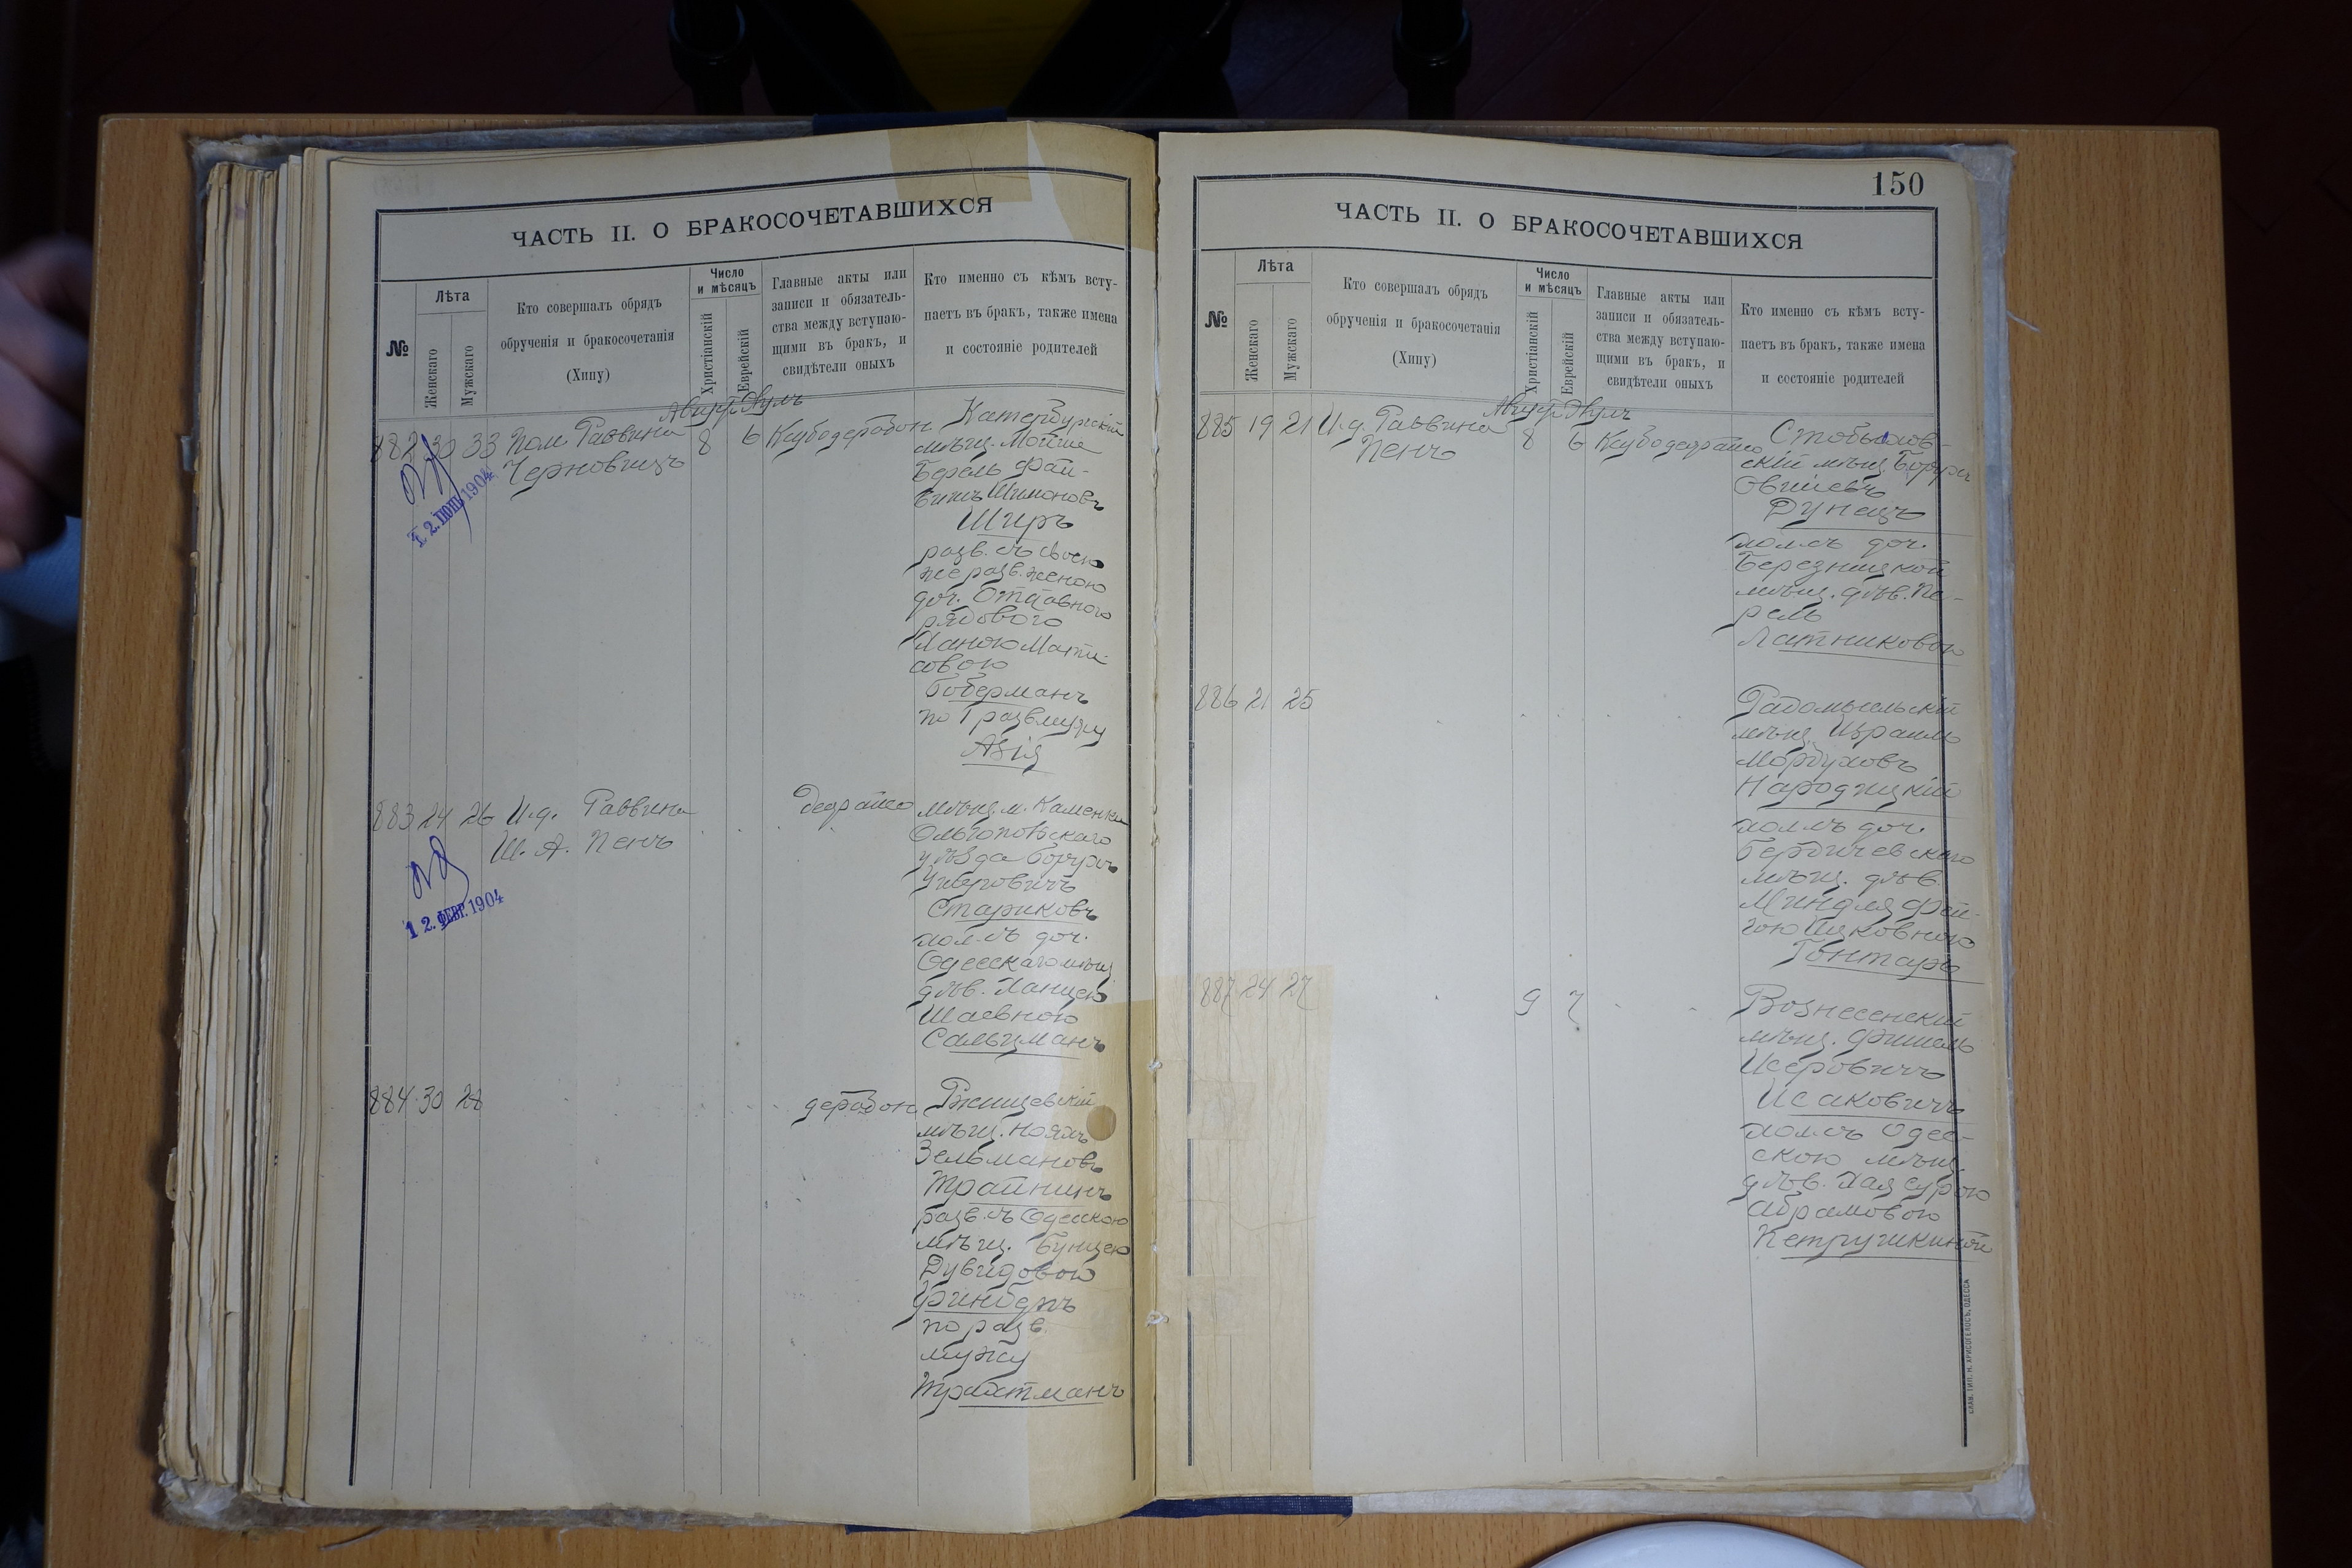 ЧАСТЬ II. О БРАКОСОЧЕТАВШИХСЯ
№
Лѣта
Женскаго
Мужскаго
Кто совершалъ обрядъ
обрученія и бракосочетанія
(Хипу)
Число
и мѣсяцъ
Христіанскій
Еврейскій
Главные акты или
записи и обязатель-
ства между вступаю-
щими въ бракъ, и
свидѣтели оныхъ
Кто именно съ кѣмъ всту-
паетъ въ бракъ, также имена
и состояніе родителей
882 30 33 Пом. Раввина 8 6
Черновицъ
12. 1904
Катербургскій
мѣщ. Мойше
Берель Фай-
Шимоновъ
Ширъ
разв. съ своею
же разв. женою
доч. Отставного
рядового
Ханою
Боберманъ
по 1 разв. мужу
Азія
883 24 26 И.д. Раввина
Ш. А. Пенъ
12. ФЕВР. 1904
мѣщ. м. Каменки
Ольгопольскаго
уѣзда Борухъ
Стариковъ
хол. съ доч.
Одесскаго мѣщ
дѣв. Ханцею
Шаевною
Сальцманъ
884 30 28
Ржищевскій
мѣщ.
Зельмановъ
Трайнинъ
разв. съ Одесскою
мѣщ. Бунцею
Дувидовою
по разв.
мужу
150
ЧАСТЬ II. О БРАКОСОЧЕТАВШИХСЯ
№
Лѣта
Женскаго
Мужскаго
Кто совершалъ обрядъ
обрученія и бракосочетанія
(Хипу)
Число
и мѣсяцъ
Христіанскій
Еврейскій
Главные акты или
записи и обязатель-
ства между вступаю-
щими въ бракъ, и
свидѣтели оныхъ
Кто именно съ кѣмъ всту-
паетъ въ бракъ, также имена
и состояніе родителей
885 19 21 И.д. Раввина 8 6
Пенъ
скій мѣщ. Борухъ
Овшіевъ
Дунецъ
хол. съ доч.
мѣщ. дѣв. Пе-
рель
Латниковою
886 21 25
Радомысльскій
мѣщ. Израиль
Мордуховъ
Народицкій
хол. съ доч.
Бердичевскаго
мѣщ. дѣв.
Миндля Фей-
гою Ицковною
Гонтаръ
887 24 27 9 7
Вознесенскій
мѣщ. Фишель
Исеровичъ
Исаковичъ
хол. съ Одес-
скою мѣщ.
дѣв. Хая Сурою
Абрамовою
Петрушкиной
СЛАВ. ТИП. Н. ХРИСОГЕЛОСЪ, ОДЕССА